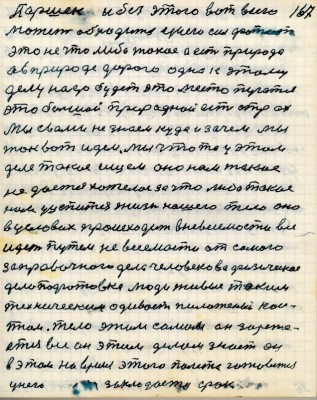 Паршек и без этого вот всего 167
может обходится у него сил хватает
это не что либо такое а есть природа
а в природе дорого одна к этому
делу надо будет это место пугатся
это большой природной есть страх
Мы с вами не знаем куда и зачем мы
так вот идем. Мы что то у этом
деле такое ищем оно нам такое
не дается хотелось за что либо такое
нам уцепится жизнь нашего тело оно
в условиях происходит в невесемости вы
идет путем не весемости от самого
заправочного дела человекова физическое
дело подготовка люди живые таким
техническим одивость пиложеный кос-
там. Тело этим самым он заряже-
ется вы он этим делом знает он
в этом на время этого полета готовится
у него закладается срок